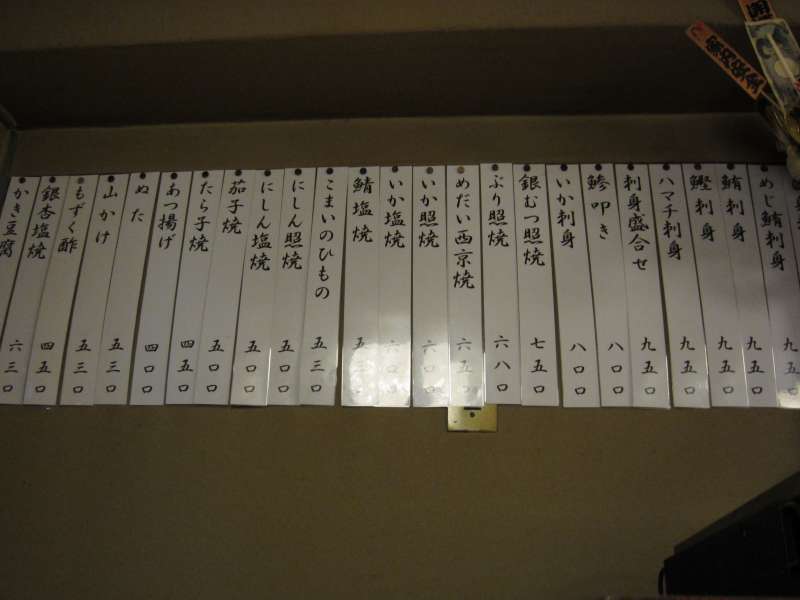 めじ鮪刺身 九五〇
鮪刺身 九五〇
鰹刺身 九五〇
ハマチ刺身 九五〇
刺身盛合せ 九五〇
鯵叩き 八〇〇
いか刺身 八〇〇
銀むつ照焼 七五〇
ぶり照焼 六八〇
めだい西京焼 六五〇
いか照焼 六〇〇
いか塩焼 六〇〇
鯖塩焼 五三〇
こまいのひもの 五三〇
にしん照焼 五〇〇
にしん塩焼 五〇〇
茄子焼 五〇〇
たら子焼 四五〇
あつ揚げ 四〇〇
ぬた 五三〇
山かけ 五三〇
もずく酢 四五〇
銀杏塩焼 六三〇
かき豆腐